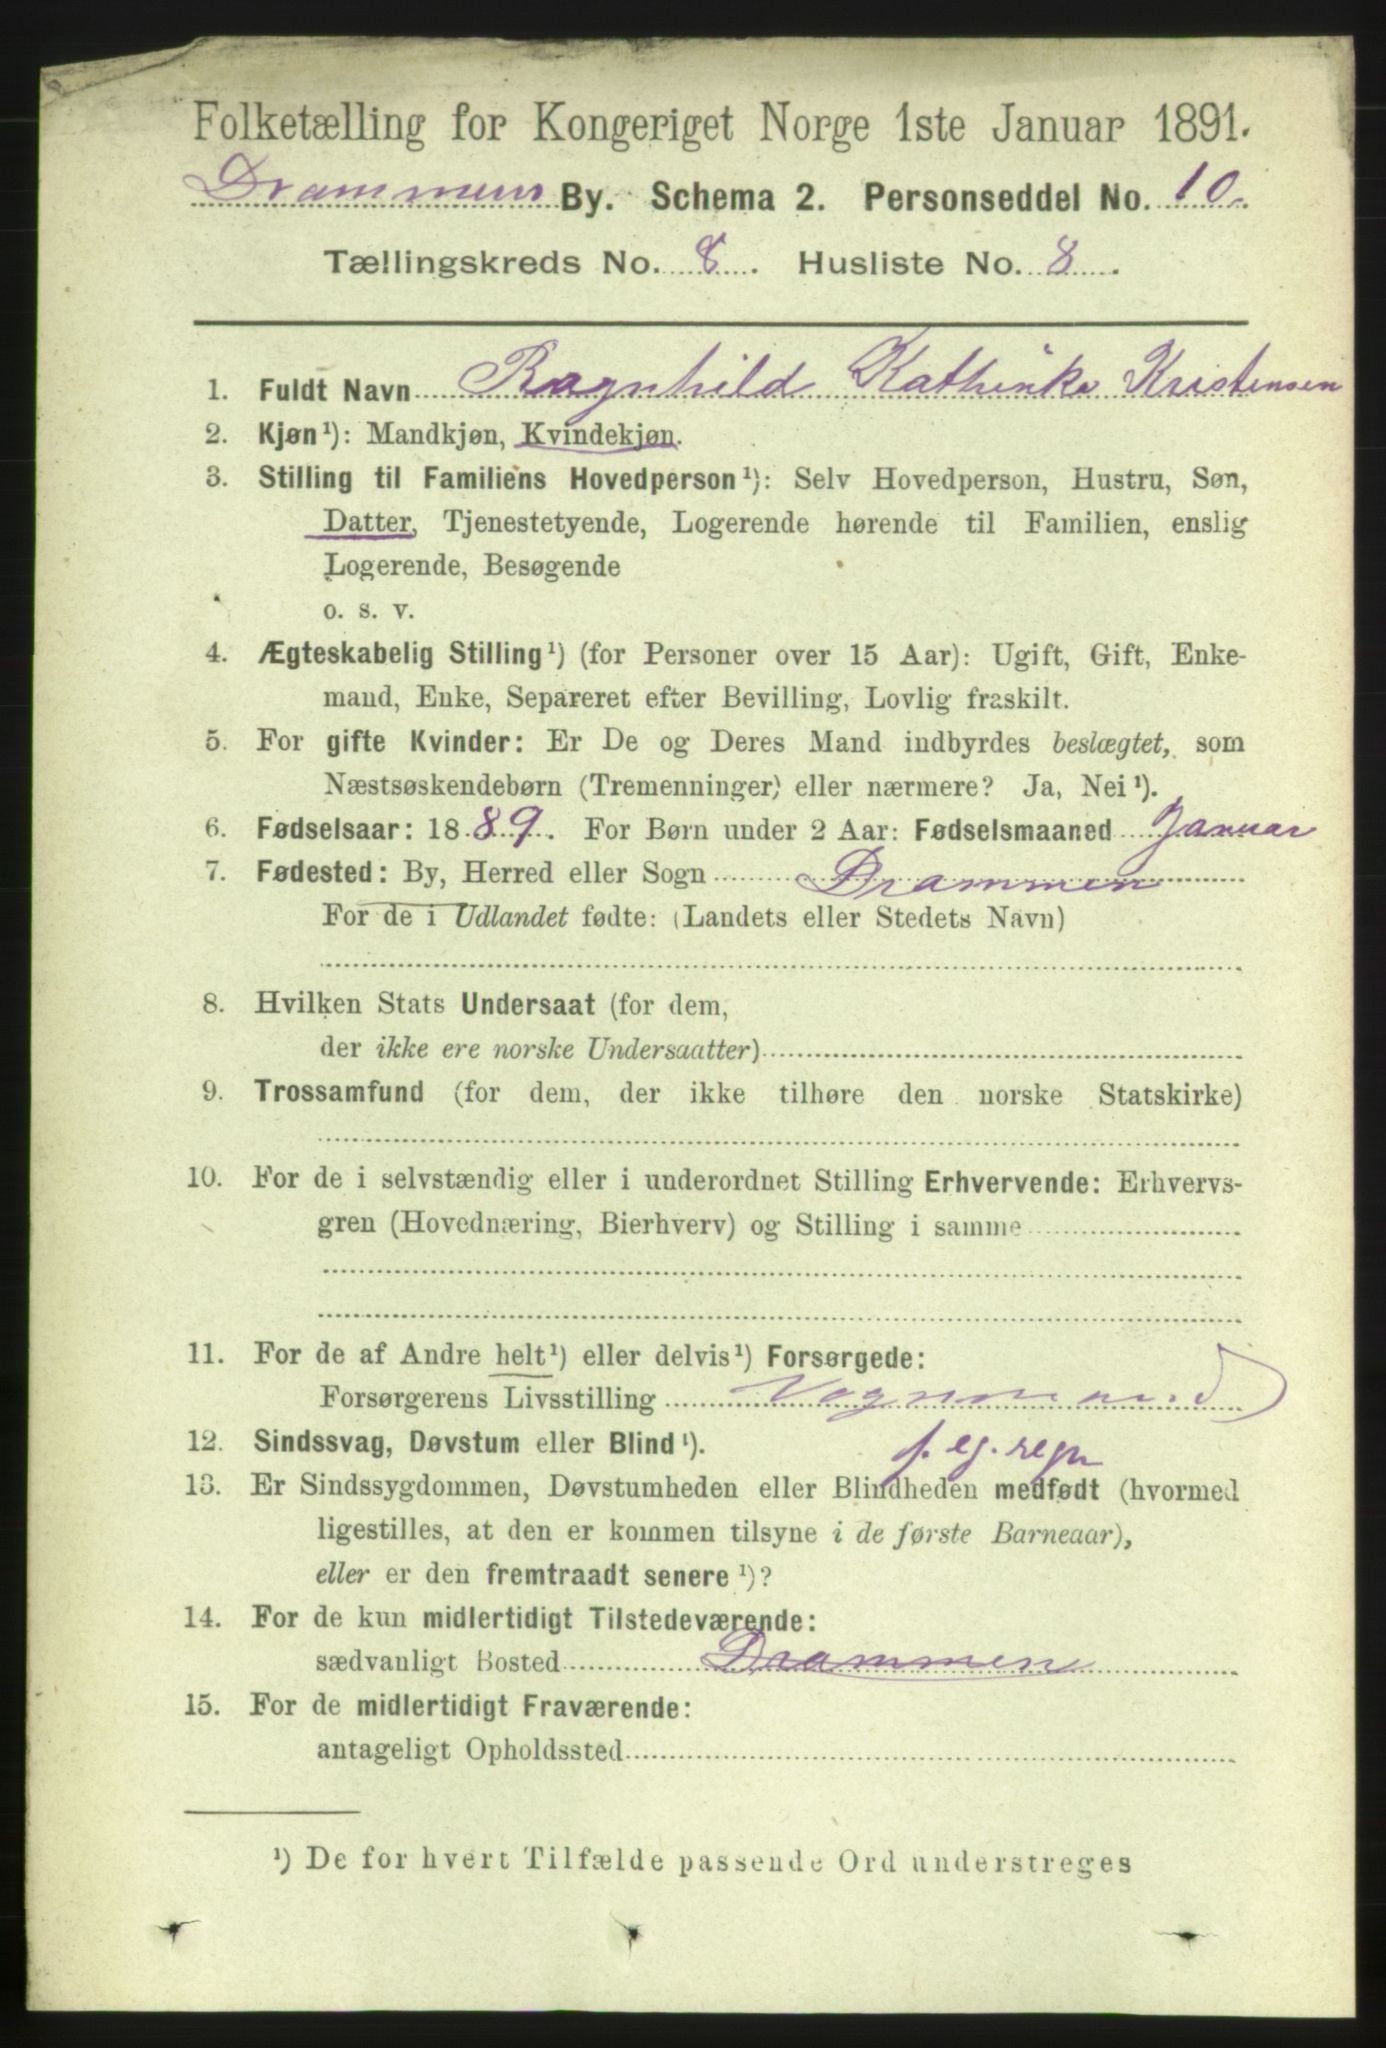 Folketælling for Kongeriget Norge 1ste Januar 1891.
Drammens By. Schema 2. Personseddel No. 10.
Tællingskreds No. 8. Husliste No. 8.
1. Fuldt Navn Ragnhild Kathinka Kristensen
2. Kjøn¹): Mandkjøn, Kvindekjøn.
3. Stilling til Familiens Hovedperson¹): Selv Hovedperson, Hustru, Søn,
Datter, Tjenestetyende, Logerende hørende til Familien, enslig
Logerende, Besøgende
o. s. v.
4. Ægteskabelig Stilling¹) (for Personer over 15 Aar): Ugift, Gift, Enke-
mand, Enke, Separeret efter Bevilling, Lovlig fraskilt.
5. For gifte Kvinder: Er De og Deres Mand indbyrdes beslægtet, som
Næstsøskendebørn (Tremenninger) eller nærmere? Ja, Nei¹).
6. Fødselsaar: 1889. For Børn under 2 Aar: Fødselsmaaned Januar
7. Fødested: By, Herred eller Sogn Drammen
For de i Udlandet fødte: (Landets eller Stedets Navn)
8. Hvilken Stats Undersaat (for dem,
der ikke ere norske Undersaatter)
9. Trossamfund (for dem, der ikke tilhøre den norske Statskirke)
10. For de i selvstændig eller i underordnet Stilling Erhvervende: Erhvervs-
gren (Hovednæring, Bierhverv) og Stilling i samme
11. For de af Andre helt¹) eller delvis¹) Forsørgede:
Forsørgerens Livsstilling Vognmand
f. eg. regn
12. Sindssvag, Døvstum eller Blind¹).
13. Er Sindssygdommen, Døvstumheden eller Blindheden medfødt (hvormed
ligestilles, at den er kommen tilsyne i de første Barneaar),
eller er den fremtraadt senere¹)?
14. For de kun midlertidigt Tilstedeværende:
sædvanligt Bosted Drammen
15. For de midlertidigt Fraværende:
antageligt Opholdssted
¹) De for hvert Tilfælde passende Ord understreges